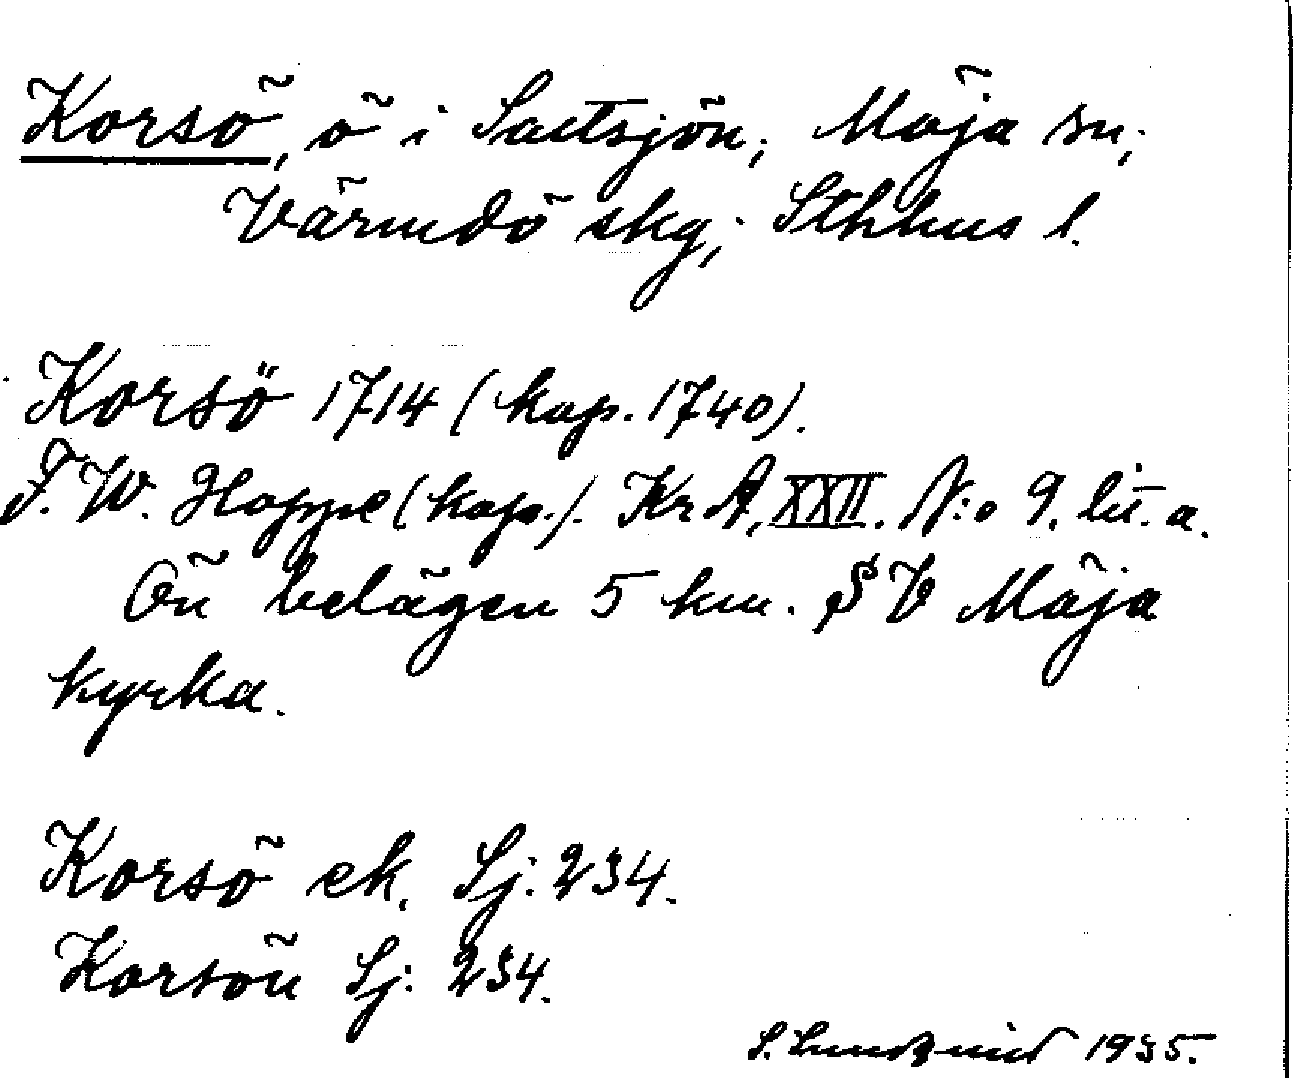 Korsö, ö i Saltsjön, Möja sn,
Värmdö skg, Sthlms l.
Korsö 1714 (kop. 1740).
F. W. Hoppe (kop.). Kr A, XXII. N:o 9. lit. a.
Ön belägen 5 km. SV Möja
kyrka.
Korsö ek. Sj. 234.
Korsön Sj. 234.
S. Lundqvist 1935.